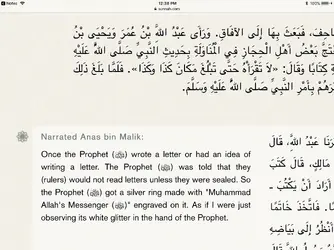 Notes
12:38 PM
sunnah.com
100%
صاحف، فبعث بها إلى الآفاق. ورأى عبد الله بن عمر ويحيى بن
حتج بعض أهل الحجاز في المناولة بحديث النبي صلى الله عليه
ة كتابا وقال: «لا تقرأه حتى تبلغ مكان كذا وكذا». فلما بلغ ذلك
هم بأمر النبي صلى الله عليه وسلم.
Narrated Anas bin Malik:
Once the Prophet (ﷺ) wrote a letter or had an idea of
writing a letter. The Prophet (ﷺ) was told that they
(rulers) would not read letters unless they were sealed. So
the Prophet (ﷺ) got a silver ring made with "Muhammad
Allah's Messenger (ﷺ)" engraved on it. As if I were just
observing its white glitter in the hand of the Prophet.
رنا عبد الله، قال
مالك، قال كتب
أراد أن يكتب ـ
، فاتخذ خاتما
أنظر إلى بياضه